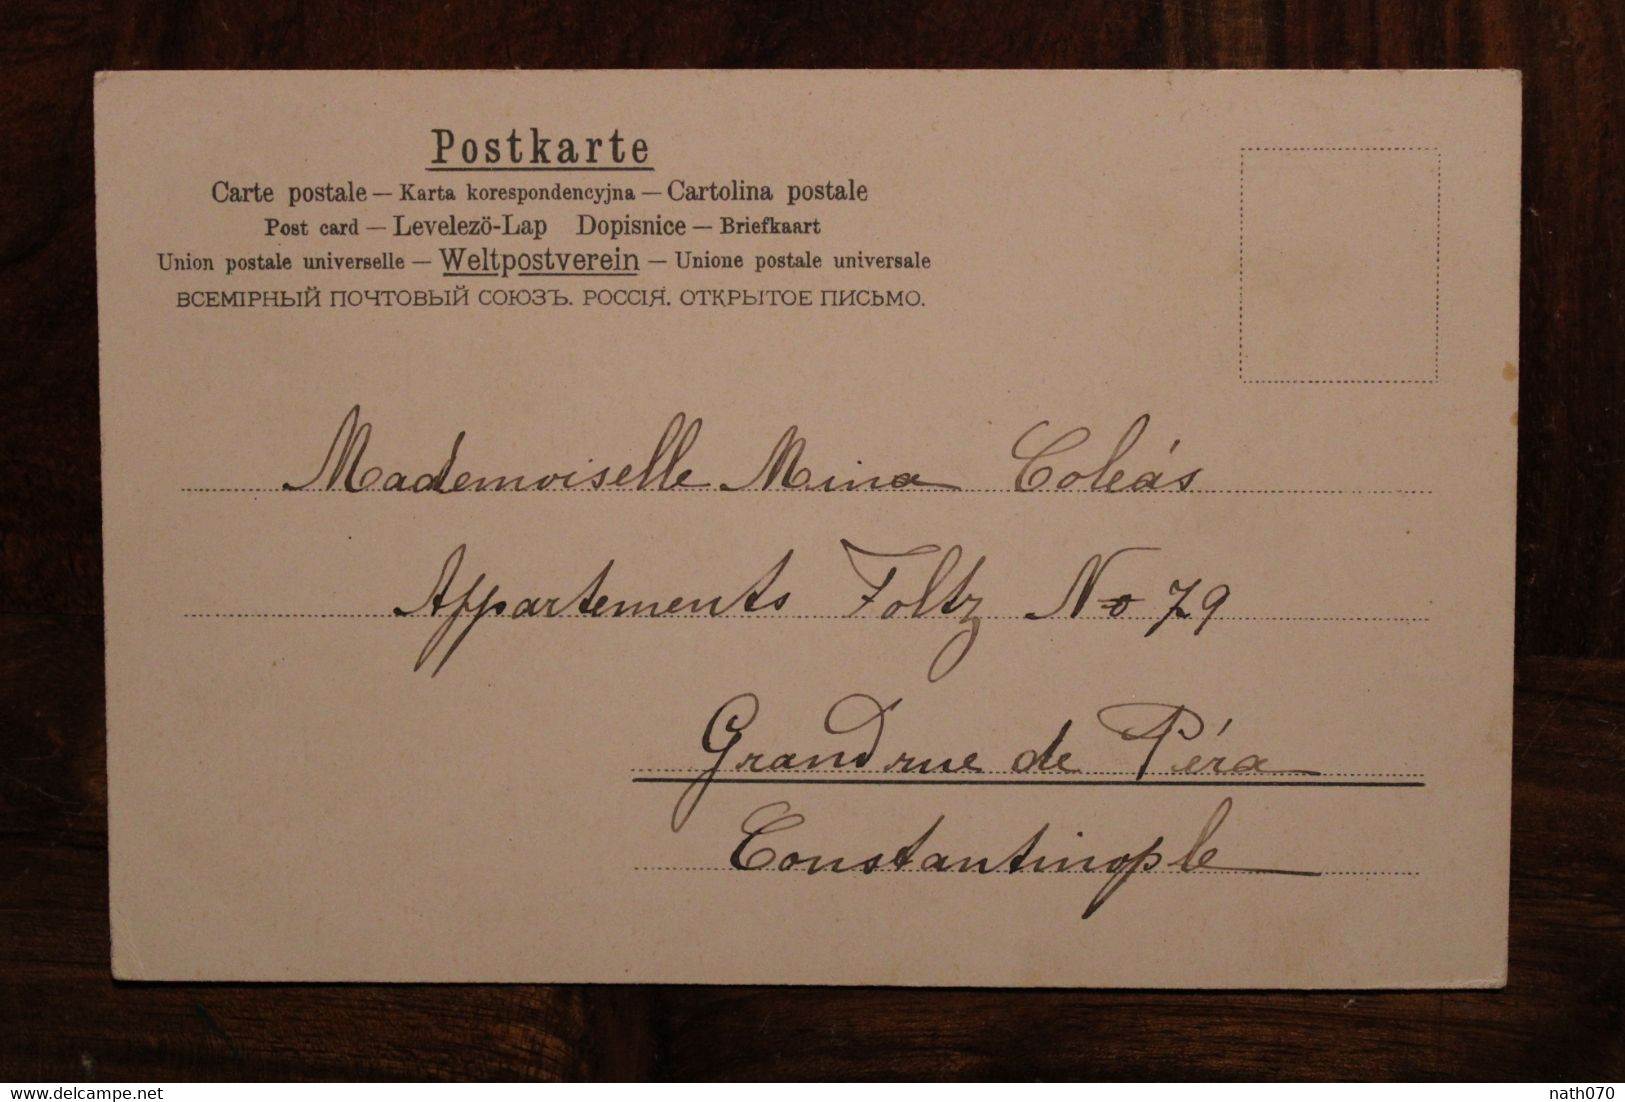 Postkarte
Carte postale — Karta korespondencyjna — Cartolina postale
Post card — Levelezö-Lap Dopisnice — Briefkaart
Union postale universelle — Weltpostverein — Unione postale universale
ВСЕМІРНЫЙ ПОЧТОВЫЙ СОЮЗЪ. РОССІЯ. ОТКРЫТОЕ ПИСЬМО.
Mademoiselle Mina Coleás
Appartements Foltz No 79
Grand rue de Péra
Constantinople
delcampe.net
nath070